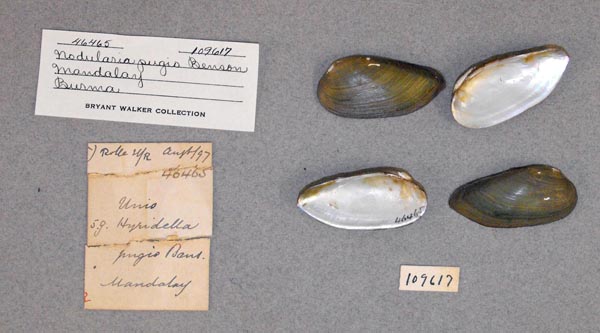 46465 109617
Nodularia pugio Benson
Mandalay
Burma
BRYANT WALKER COLLECTION
) Rolle 4/R Aug't/97
46465
Unio
s.g. Hyridella
pugio Bens.
Mandalay
46465
109617